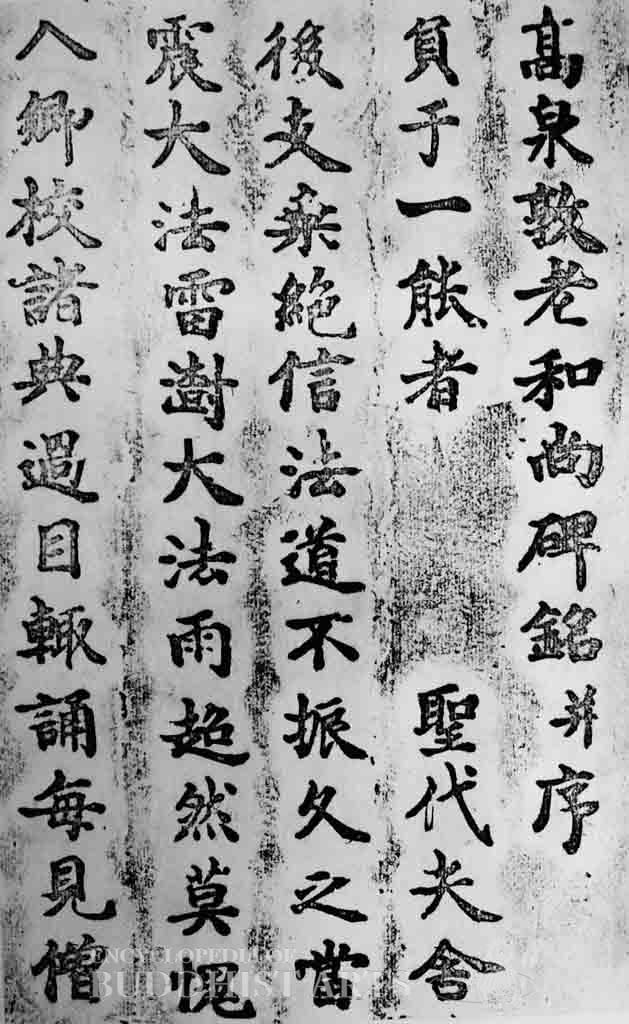 髙泉敦老和尚碑銘并序
負于一能者 聖代夫舍
後支乗絶信法道不振久之當
震大法雷澍大法雨超然莫愧
入鄉校諸典過目輙誦每見僧
ENCYCLOPEDIA OF
BUDDHIST ARTS